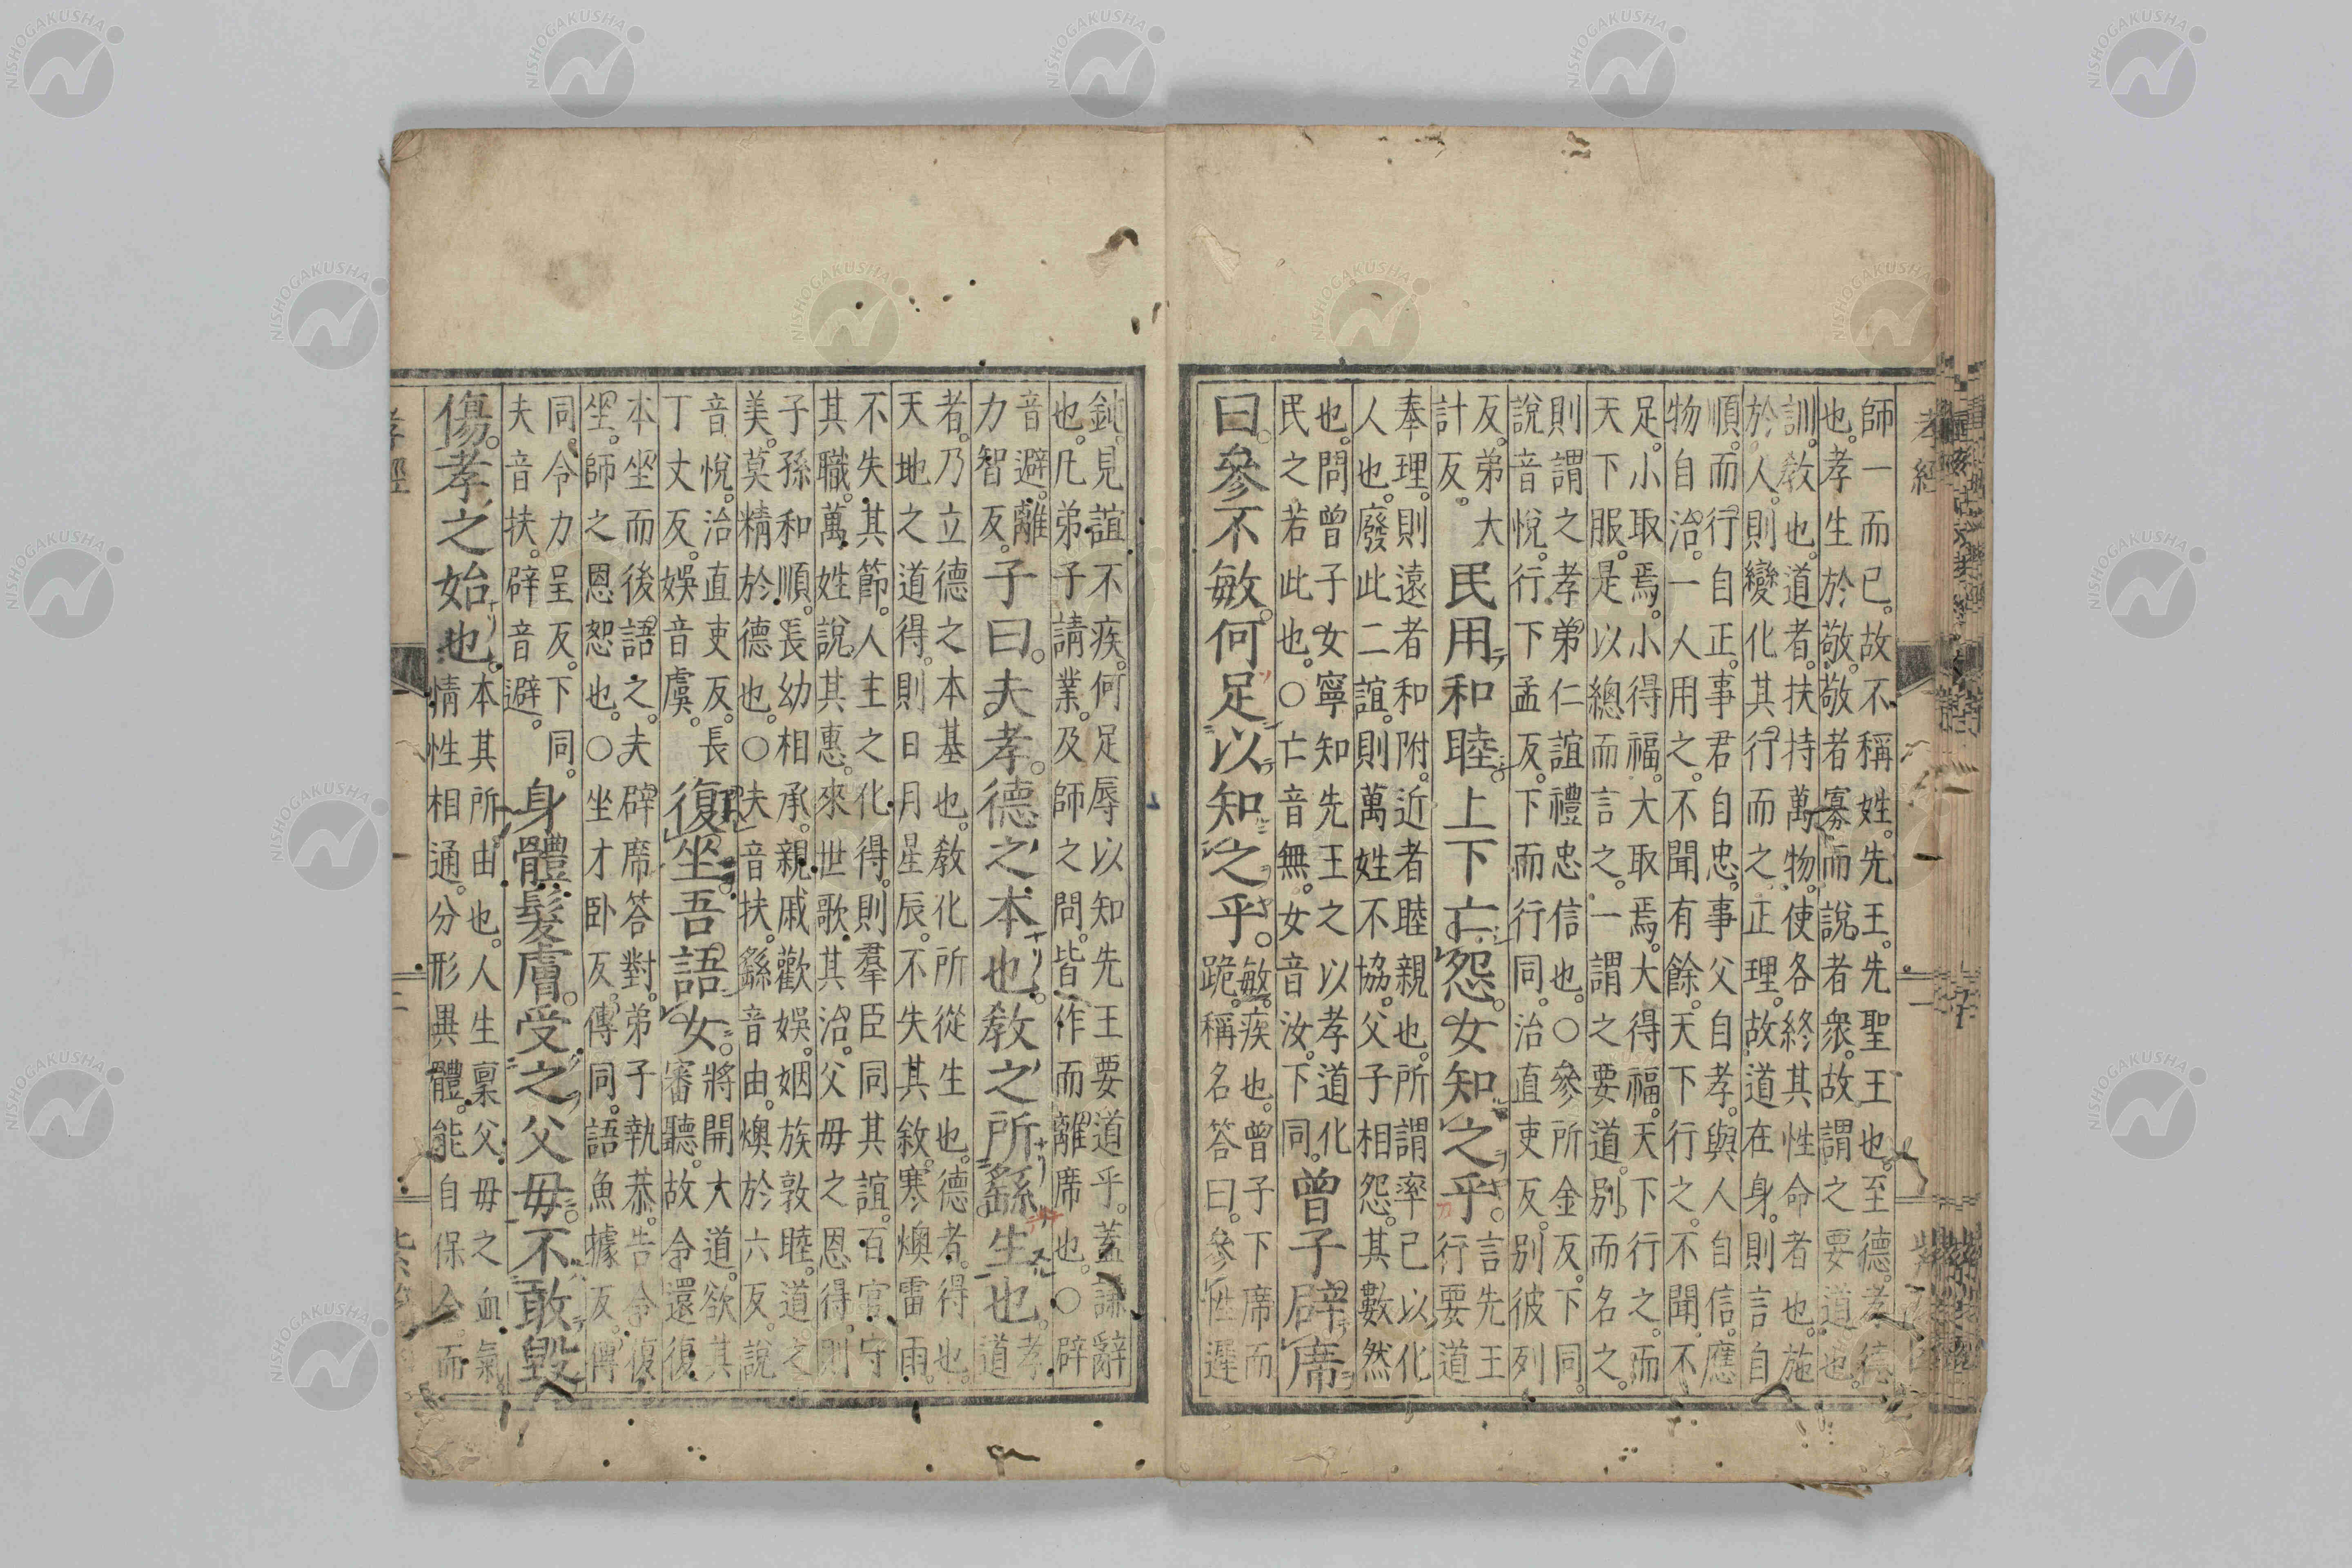 孝經
師一而已。故不稱姓。先王。先聖王也。至德。孝德
也。孝生於敬。敬者寡而說者衆。故謂之要道也。
訓。敎也。道者。扶持萬物。使各終其性命者也。施
於人。則變化其行而之正理。故道在身。則言自
順。而行自正。事君自忠。事父自孝。與人自信。應
物自治。一人用之。不聞有餘。天下行之。不聞不
足。小取焉。小得福。大取焉。大得福。天下行之。而
天下服。是以總而言之。一謂之要道。別而名之。
則謂之孝弟仁誼禮忠信也。○參所金反。下同。
說音悅。行下孟反。下而行同。治直吏反。別彼列
反。弟大計反。民用和睦。上下亡怨。女知之乎。言先王行要道
奉理。則遠者和附。近者睦親也。所謂率已以化
人也。廢此二誼。則萬姓不協。父子相怨。其數然
也。問曾子女寧知先王之以孝道化民之若此也。○亡音無。女音汝。下同。曾子辟席
曰。參不敏。何足以知之乎。敏。疾也。曾子下席而跪。稱名答曰。參性遲
鈍。見誼不疾。何足辱以知先王要道乎。蓋謙辭
也。凡弟子請業。及師之問。皆作而離席也。○辟
音避。離力智反。子曰。夫孝。德之本也。敎之所繇生也。孝道
者。乃立德之本基也。敎化所從生也。德者。得也。
天地之道得。則日月星辰。不失其敘。寒燠雷雨。
不失其節。人主之化得。則羣臣同其誼。百官守
其職。萬姓說其惠。來世歌其治。父母之恩得。則
子孫和順。長幼相承。親戚歡娛。姻族敦睦。道之
美。莫精於德也。○夫音扶。繇音由。燠於六反。說
音悅。治直吏反。長丁丈反。娛音虞。復坐吾語女。將開大道。欲其審聽。故令還復
本坐而後語之。夫辟席答對。弟子執恭。告令復
坐。師之恩恕也。○坐才卧反。傳同。語魚據反。傳
同。令力呈反。下同。夫音扶。辟音避。身體髮膚。受之父母。不敢毀
傷。孝之始也。本其所由也。人生稟父母之血氣情性相通。分形異體。能自保全。而
孝經